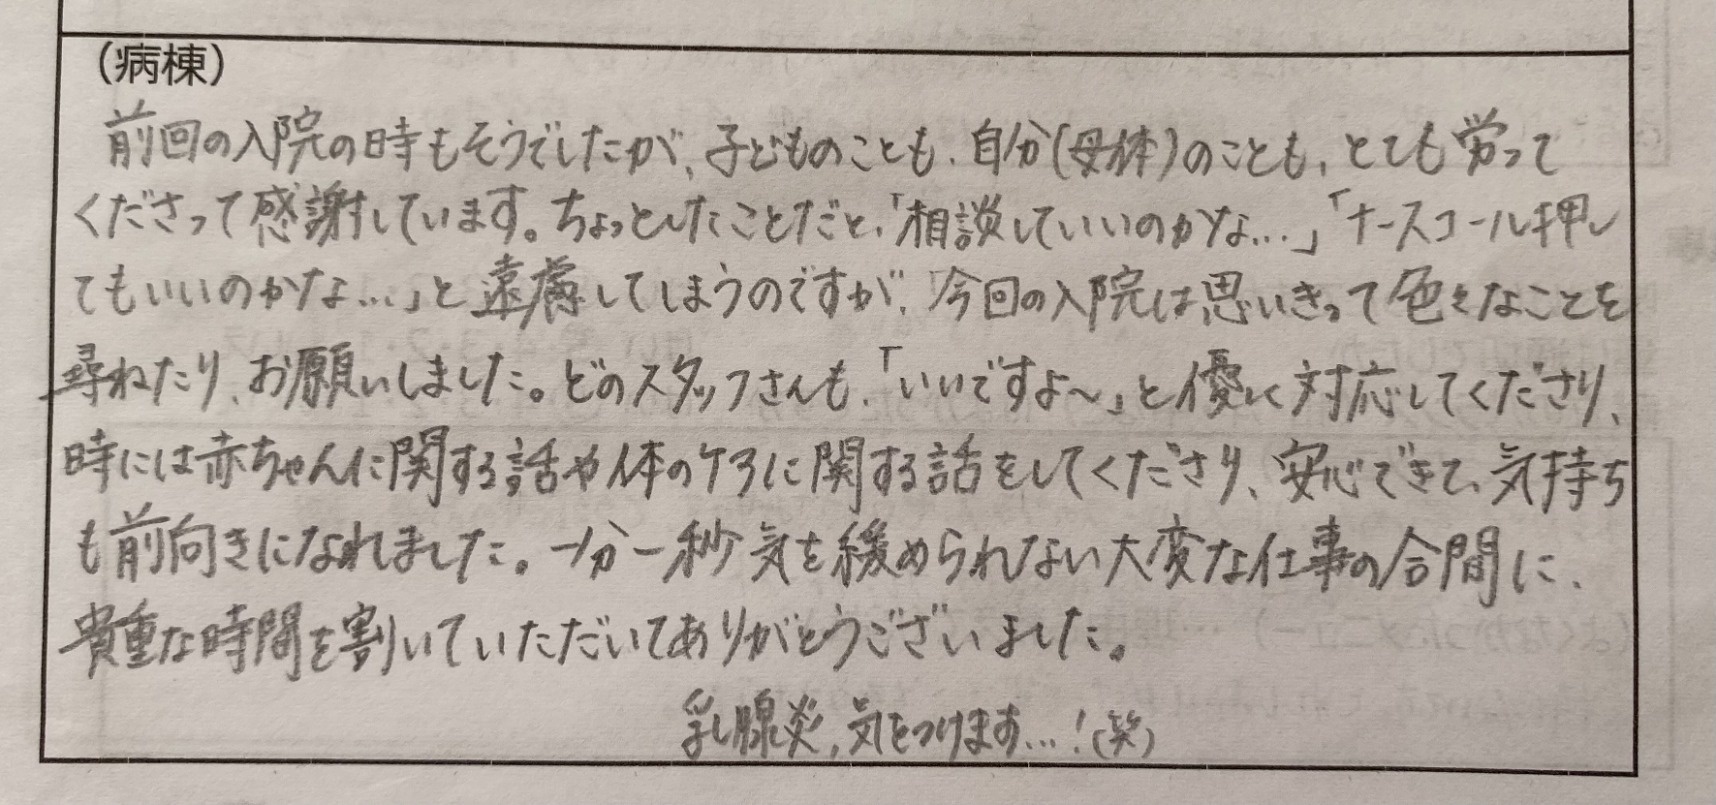 (病棟)
前回の入院の時もそうでしたが、子どものことも、自分(母体)のことも、とても労って
くださって感謝しています。ちょっとしたことだと、「相談していいのかな…」「ナースコール押し
てもいいのかな…」と遠慮してしまうのですが、今回の入院は思いきって色々なことを
尋ねたり、お願いしました。どのスタッフさんも、「いいですよ〜」と優しく対応してくださり、
時には赤ちゃんに関する話や体のケアに関する話をしてくださり、安心できて、気持ち
も前向きになれました。一分一秒気を緩められない大変な仕事の合間に、
貴重な時間を割いていただいてありがとうございました。
乳腺炎、気をつけます…!(笑)